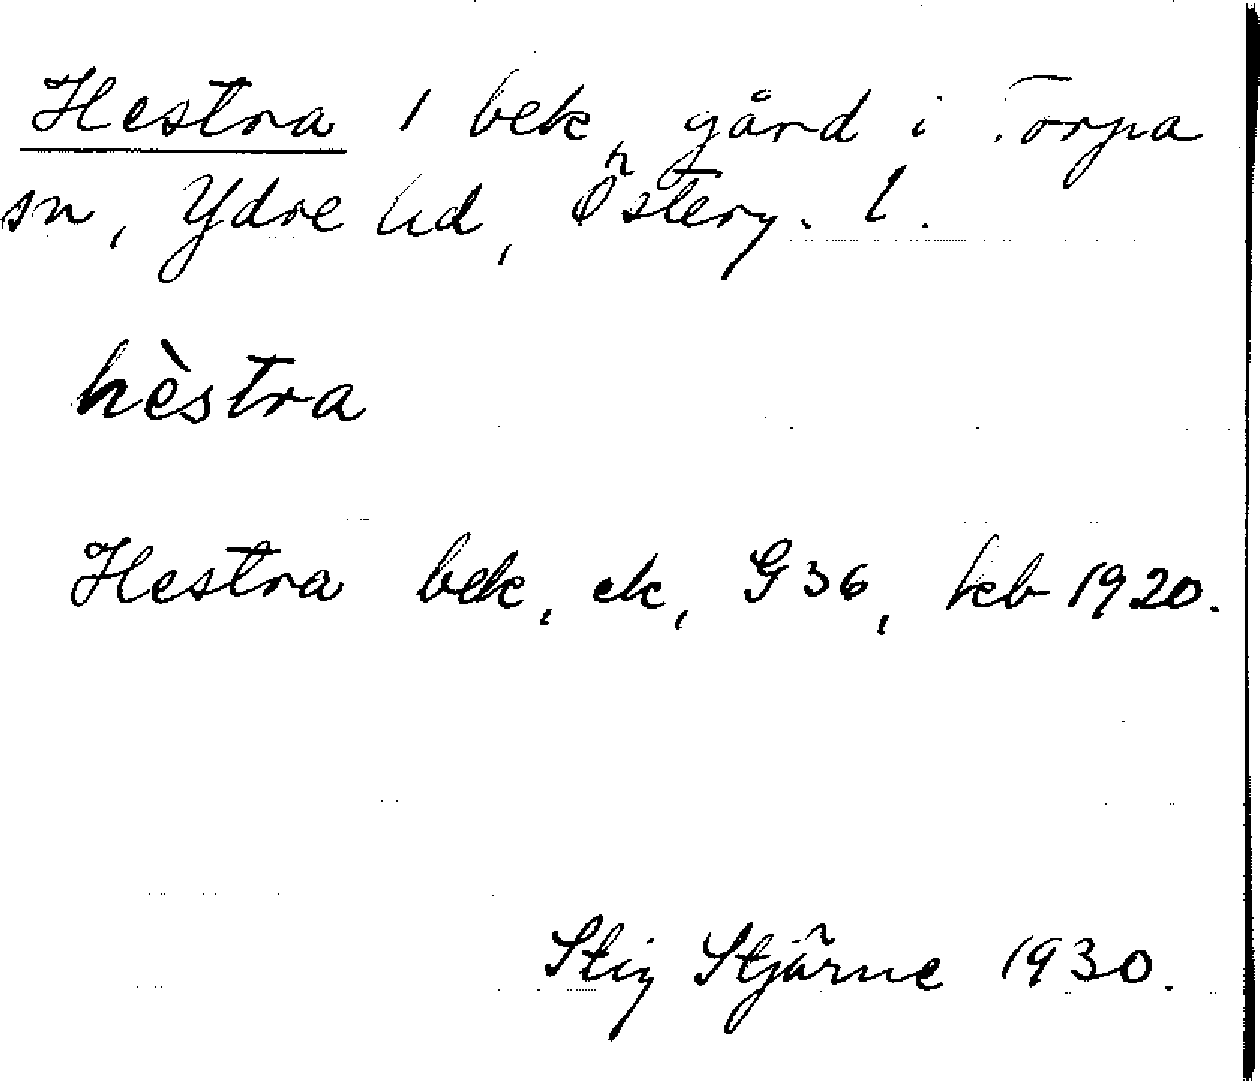 Hestra 1 bek, gård i Torpa
sn, Ydre hd, Österg. l.
hèstra
Hestra bek, ek, G 36, kcb 1920.
Stig Stjärne 1930.